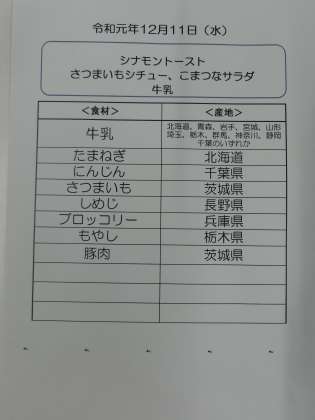 令和元年12月11日（水）
シナモントースト
さつまいもシチュー、こまつなサラダ
牛乳
＜食材＞ ＜産地＞
牛乳 北海道、青森、岩手、宮城、山形
埼玉、栃木、群馬、神奈川、静岡
千葉のいずれか
たまねぎ 北海道
にんじん 千葉県
さつまいも 茨城県
しめじ 長野県
ブロッコリー 兵庫県
もやし 栃木県
豚肉 茨城県